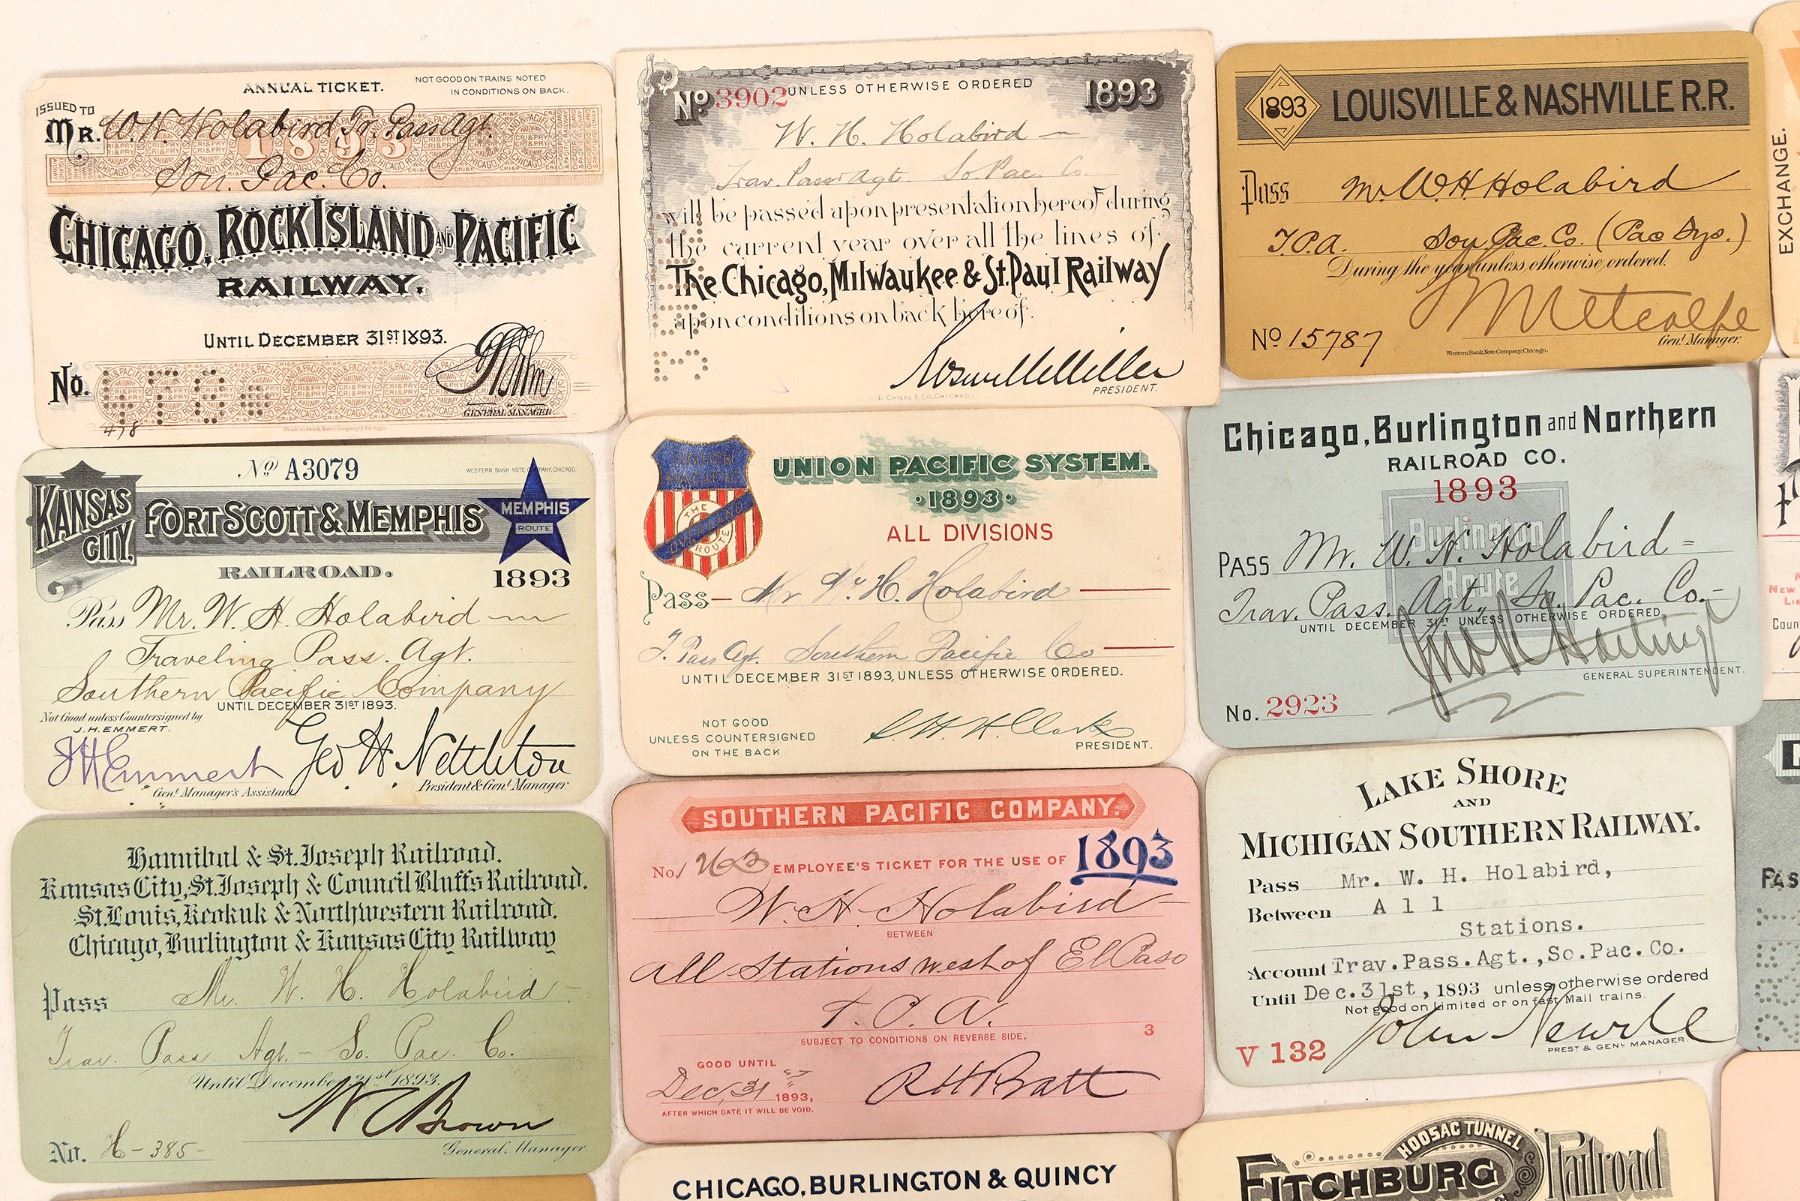 ANNUAL TICKET.
NOT GOOD ON TRAINS NOTED
IN CONDITIONS ON BACK.
ISSUED TO
MR. W. H. Holabird Tr. Pass Agt.
1893
Sou. Pac. Co.
CHICAGO, ROCK ISLAND AND PACIFIC
RAILWAY.
UNTIL DECEMBER 31ST 1893.
No.
GENERAL MANAGER
478
Western Bank Note Company, Chicago.
No 3902 UNLESS OTHERWISE ORDERED 1893
W. H. Holabird
Trav. Pass Agt So Pac. Co.
will be passed upon presentation hereof during
the current year over all the lines of
The Chicago, Milwaukee & St. Paul Railway
upon conditions on back hereof.
Roswell Miller
PRESIDENT.
1893 LOUISVILLE & NASHVILLE R.R.
Pass Mr W. H. Holabird
T.P.A. Sou Pac. Co. (Pac Sys.)
During the year unless otherwise ordered.
Metcalfe
No 15787 Genl. Manager.
Western Bank Note Company, Chicago.
EXCHANGE.
No A3079
WESTERN BANK NOTE COMPANY, CHICAGO.
KANSAS CITY, FORT SCOTT & MEMPHIS
MEMPHIS ROUTE
RAILROAD. 1893
Pass Mr. W H Holabird
Traveling Pass. Agt.
Southern Pacific Company
UNTIL DECEMBER 31ST 1893.
Not Good unless Countersigned by
J.H. EMMERT.
J H Emmert Geo H Nettleton
Genl. Manager's Assistant President & Genl. Manager
UNION PACIFIC
THE OVERLAND ROUTE
UNION PACIFIC SYSTEM.
1893
ALL DIVISIONS
Pass Mr W. H. Holabird
T. Pass Agt. Southern Pacific Co
UNTIL DECEMBER 31ST 1893, UNLESS OTHERWISE ORDERED.
NOT GOOD
UNLESS COUNTERSIGNED
ON THE BACK
S. H. H. Clark
PRESIDENT.
Chicago, Burlington and Northern
RAILROAD CO.
1893
Burlington
Route
PASS Mr. W. H. Holabird
Trav. Pass. Agt., So. Pac. Co.
UNTIL DECEMBER 31ST UNLESS OTHERWISE ORDERED.
GENERAL SUPERINTENDENT.
No. 2923
Hannibal & St. Joseph Railroad.
Kansas City, St. Joseph & Council Bluffs Railroad.
St. Louis, Keokuk & Northwestern Railroad.
Chicago, Burlington & Kansas City Railway
Pass Mr. W. H. Holabird
Trav. Pass. Agt. - So. Pac. Co.
Until December 31st 1893.
W C Brown
No. H-385- General Manager
SOUTHERN PACIFIC COMPANY.
No. 1263 EMPLOYEE'S TICKET FOR THE USE OF 1893
W. H. Holabird
BETWEEN
All Stations west of El Paso
T. P. A.
SUBJECT TO CONDITIONS ON REVERSE SIDE. 3
GOOD UNTIL
Dec. 31st 1893,
AFTER WHICH DATE IT WILL BE VOID.
R H Pratt
LAKE SHORE
AND
MICHIGAN SOUTHERN RAILWAY.
Pass Mr. W. H. Holabird,
Between All
Stations.
Account Trav.Pass.Agt.,So.Pac.Co.
Until Dec.31st, 1893 unless otherwise ordered
Not good on Limited or on fast Mail trains.
John Newell
PREST & GENL MANAGER.
V 132
CHICAGO, BURLINGTON & QUINCY
HOOSAC TUNNEL
FITCHBURG Railroad